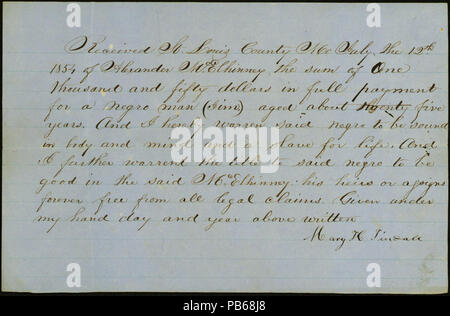 Received St. Louis County Mo July, the 12th
1854 of Alexander McElhinney the sum of One
thousand and fifty dollars in full payment
for a negro man (Jim) aged about five
years. And I hereby warren said negro to be sound
in body and mind and a slave for life. And
I further warrent the title to said negro to be
good in the said McElhinney. his heirs or asigns
forever free from all legal claims. Given under
my hand day and year above written
Mary H. Tindall
alamy
PB68J8